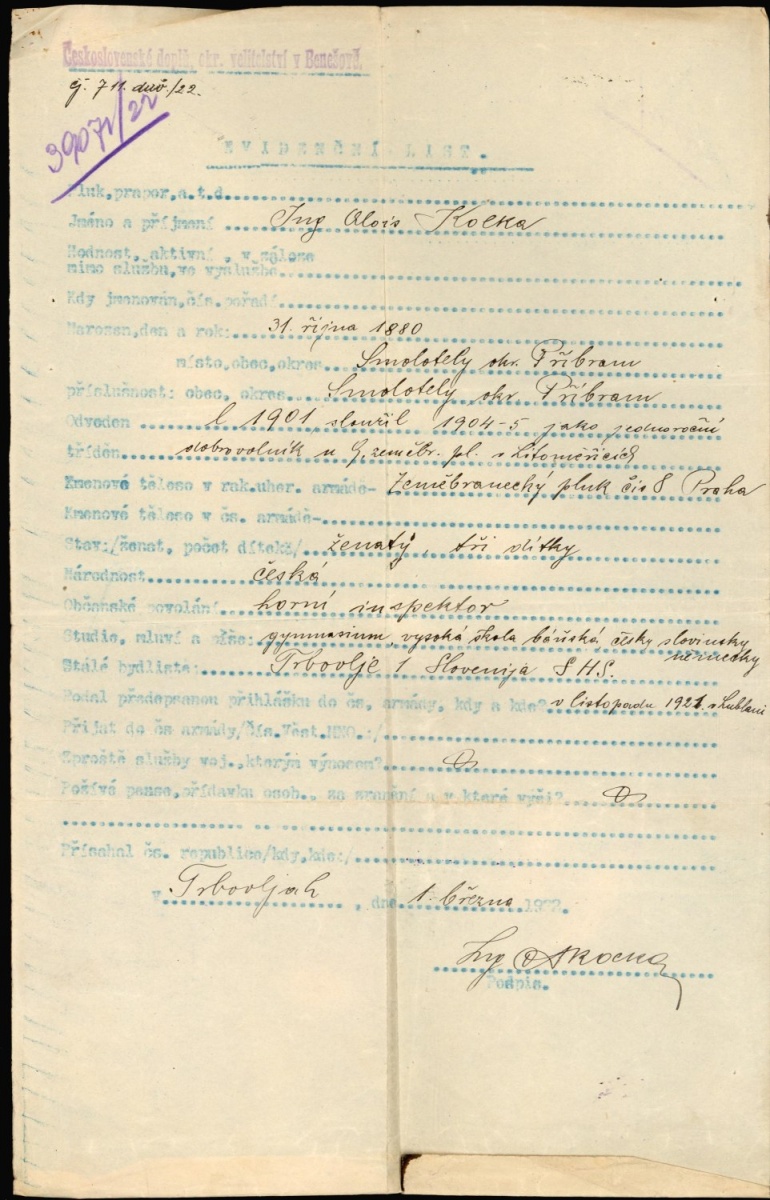 Československé doplň. okr. velitelství v Benešově.
čj. 711. dův./22.
39071/22
EVIDENČNÍ LIST.
Pluk, prapor, a.t.d.
Jméno a příjmení Ing Alois Kocka
Hodnost, aktivní, v záloze
mimo službu, ve výslužbě
Kdy jmenován, čís. pořadí
Narozen, den a rok: 31. října 1880
místo, obec, okres Smolotely okr. Příbram
příslušnost: obec, okres Smolotely okr Příbram
Odveden l 1901, sloužil 1904-5 jako jednoroční
tříděn dobrovolník u 9. zeměbr. pl. v Litoměřicích
Kmenové těleso v rak. uher. armádě- Zeměbranecký pluk čís 8 Praha
Kmenové těleso v čs. armádě-
Stav:/ženat, počet dítek/ ženatý, tři dítky
Národnost česká
Občanské povolání horní inspektor
Studie, mluví a píše: gymnasium, vysoká škola báňská, česky slovinsky
německy
Stálé bydliště: Trbovlje 1 Slovenija S H S.
Podal předepsanou přihlášku do čs. armády, kdy a kde? v listopadu 1921. v Lublani
Přijat do čs armády/čís. Věst. MNO.:/
Zproštěn služby voj., kterým výnosem?
Požívá pense, přídavku osob., za zranění a v které výši?
Přísahal čs. republice/kdy, kde:/
v Trbovljah, dne 1. března 1922.
Ing A Kocka
Podpis.